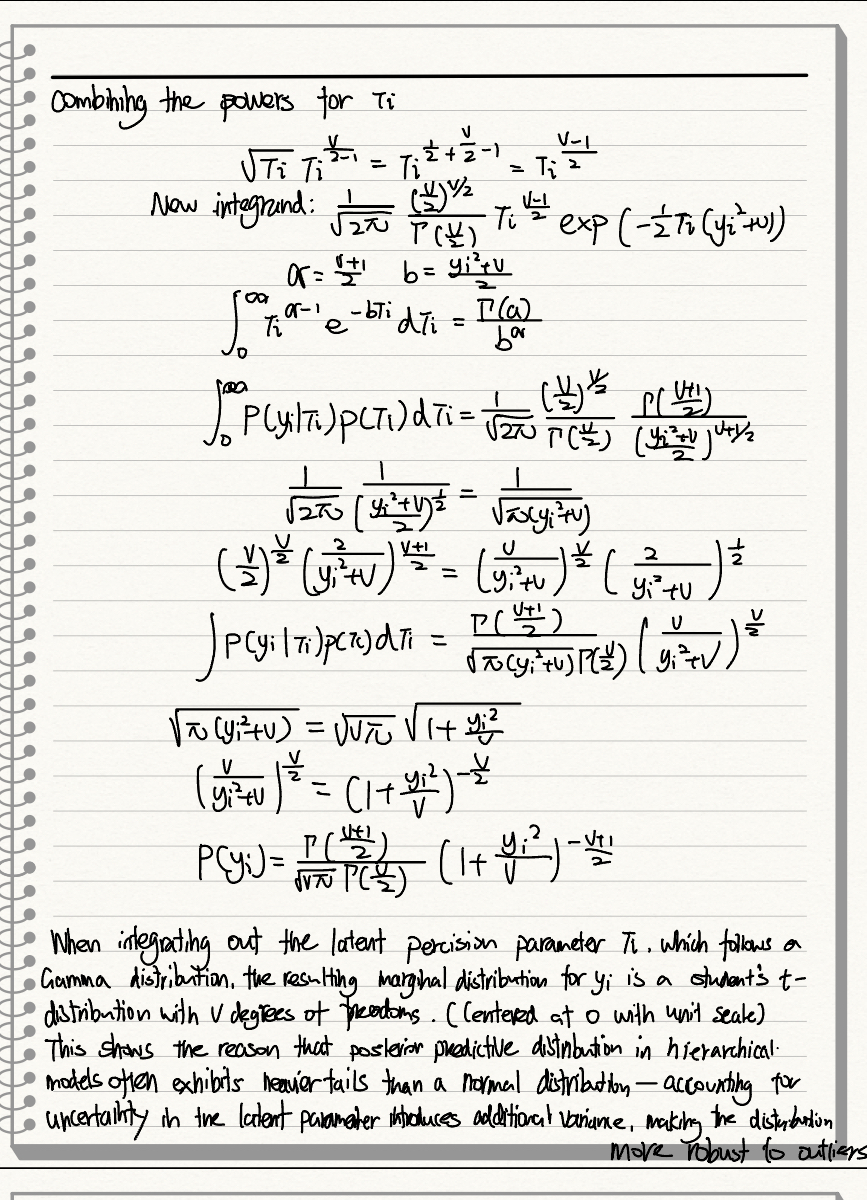 Combining the powers for τi
√τi τi^(ν/2-1) = τi^(1/2+ν/2-1) = τi^((ν-1)/2)
New integrand: 1/√(2π) (ν/2)^(ν/2)/Γ(ν/2) τi^((ν-1)/2) exp(-1/2 τi(yi²+ν))
α = (ν+1)/2 b = (yi²+ν)/2
∫₀^∞ τi^(α-1) e^(-bτi) dτi = Γ(a)/b^α
∫₀^∞ P(yi|τi)p(τi)dτi = 1/√(2π) (ν/2)^(ν/2)/Γ(ν/2) Γ((ν+1)/2)/((yi²+ν)/2)^(ν+1/2)
1/√(2π) 1/((yi²+ν)/2)^(1/2) = 1/√(π(yi²+ν))
(ν/2)^(ν/2) (2/(yi²+ν))^((ν+1)/2) = (ν/(yi²+ν))^(ν/2) (2/(yi²+ν))^(1/2)
∫P(yi|τi)p(τi)dτi = Γ((ν+1)/2)/(√(π(yi²+ν)) Γ(ν/2)) (ν/(yi²+ν))^(ν/2)
√(π(yi²+ν)) = √(νπ) √(1+yi²/ν)
(ν/(yi²+ν))^(ν/2) = (1+yi²/ν)^(-ν/2)
P(yi) = Γ((ν+1)/2)/(√(νπ) Γ(ν/2)) (1+yi²/ν)^(-(ν+1)/2)
When integrating out the latent percision parameter τi, which follows a
Gamma distribution, the resulting marginal distribution for yi is a student's t-
distribution with ν degrees of freedoms. (Centered at 0 with unit scale)
This shows the reason that posterior predictive distribution in hierarchical
models often exhibits heavier tails than a normal distribution — accounting for
uncertainity in the latent parameter introduces additional variance, making the distribution
more robust to outliers